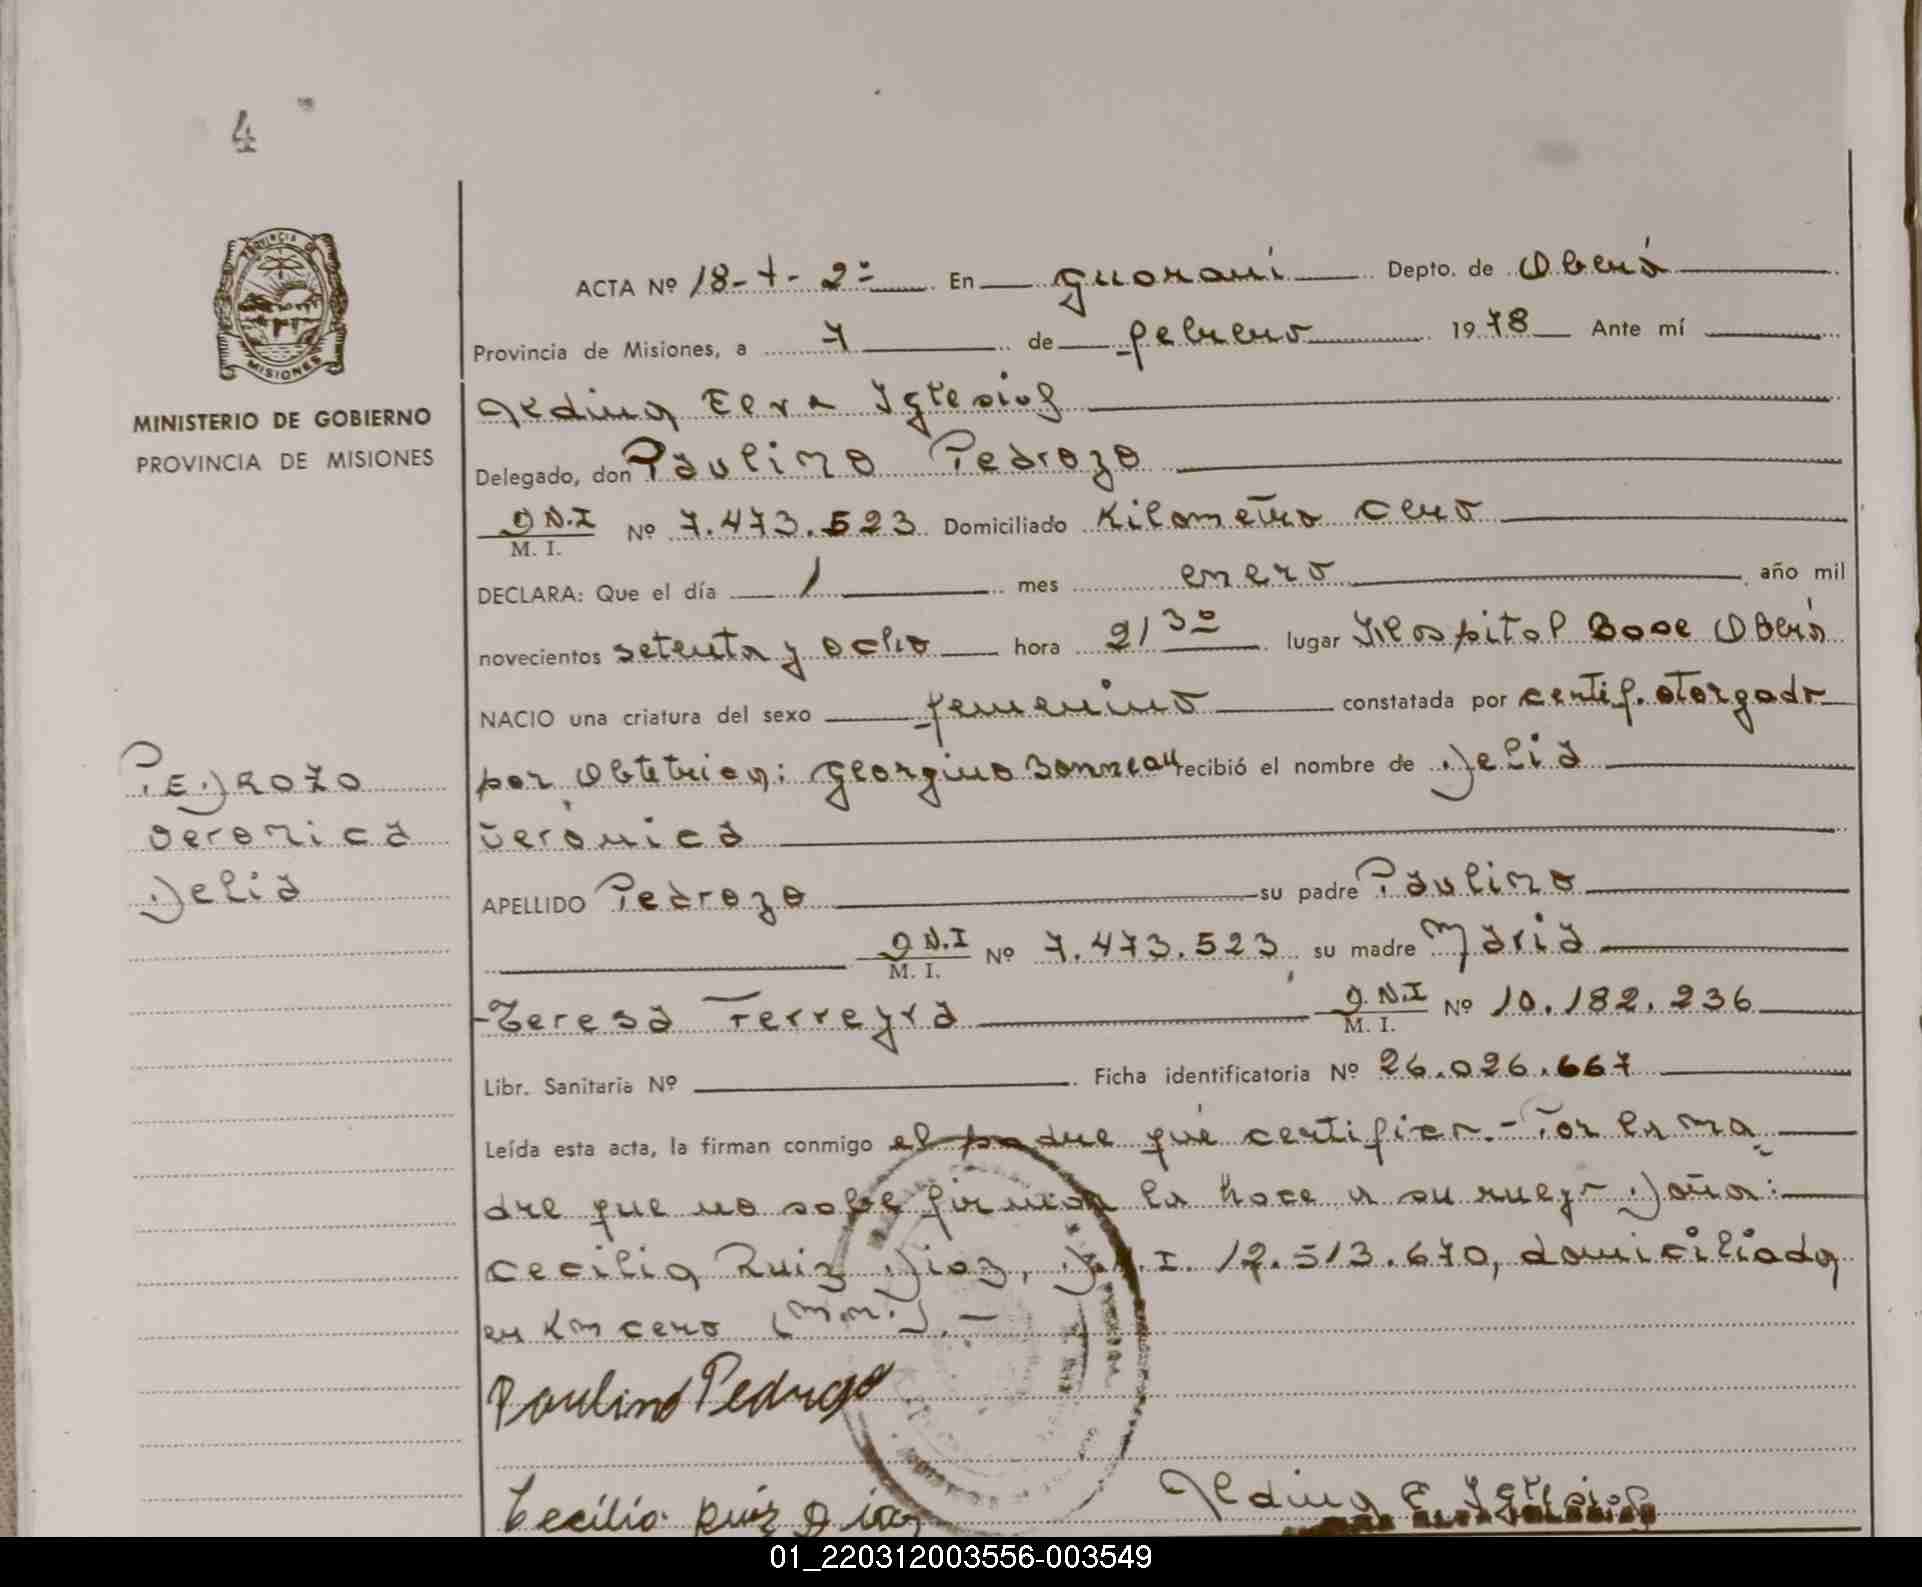 4
PROVINCIA DE
MISIONES
MINISTERIO DE GOBIERNO
PROVINCIA DE MISIONES
ACTA Nº 18-7-2º En Guarani Depto. de Oberá
Provincia de Misiones, a 7 de febrero 1978 Ante mí
Iglesias
Delegado, don Paulino Pedrozo
D N.I
M. I. Nº 7.473.523 Domiciliado Kilometro cero
DECLARA: Que el día 1 mes enero año mil
novecientos setenta y ocho hora 21 30 lugar Hospital Base Oberá
NACIO una criatura del sexo femenino constatada por certif. otorgado
por Obtetrica: Georgina Bonneau recibió el nombre de Delia
Verónica
PEDROZO
Veronica
Delia
APELLIDO Pedrozo su padre Paulino
D N.I
M. I. Nº 7.473.523 su madre Maria
Teresa Ferreyra D.N.I
M. I. Nº 10.182.236
Libr. Sanitaria Nº Ficha identificatoria Nº 26.026.667
Leída esta acta, la firman conmigo el padre que certifica.- Por la ma
dre que no sabe firmar la hace a su ruego Doña:
Cecilia Ruiz Diaz, D.N.I. 12.513.670, domiciliada
en Km cero (Mnes.).-
Paulino Pedrozo
Cecilia Ruiz Diaz
E. Iglesias
01_220312003556-003549